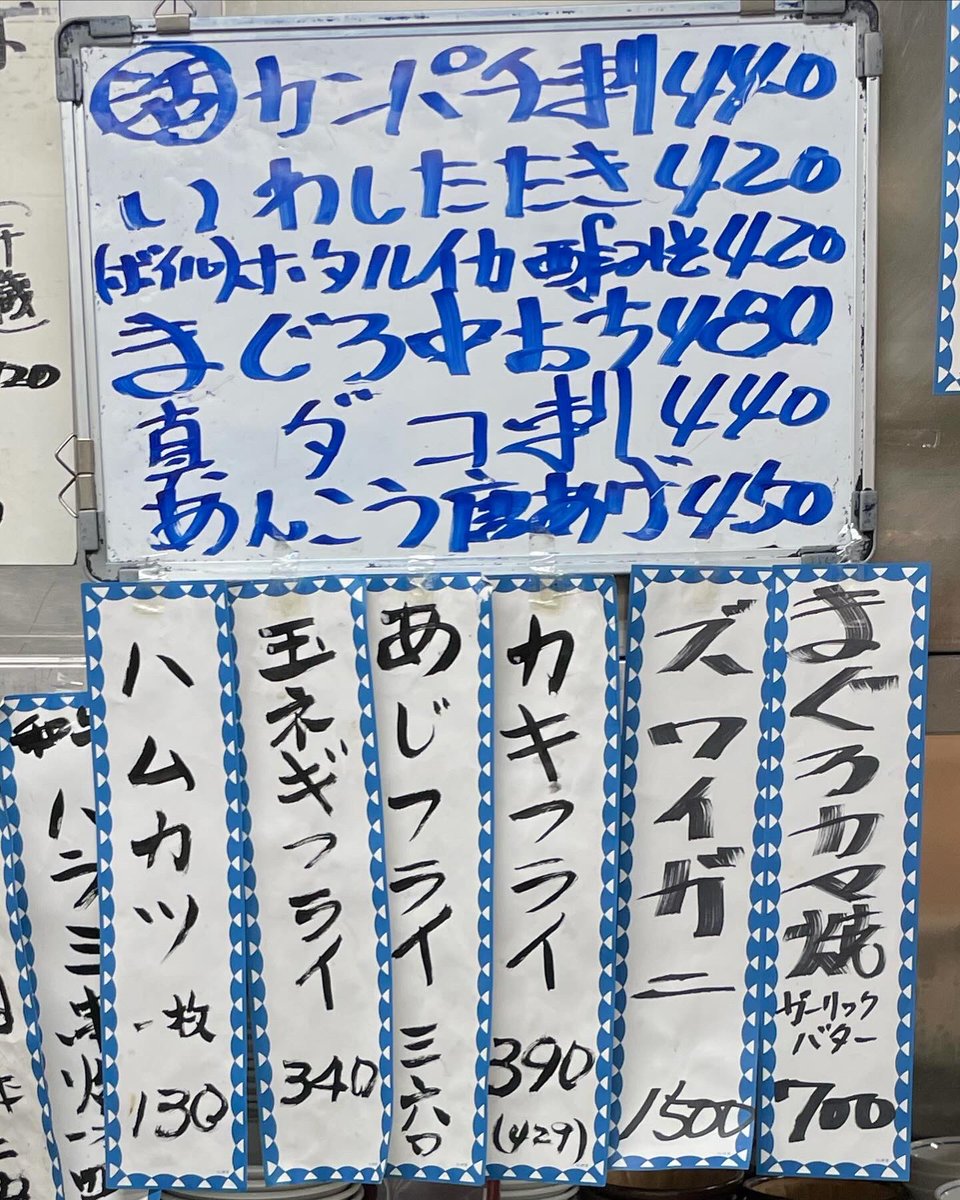 ㊗ カンパチ刺 440
いわしたたき 420
(ボイル)ホタルイカ 酢みそ 420
まぐろ中おち 480
真ダコ刺 440
あんこう唐あげ 450
まぐろカマ焼
ガーリック
バター
700
ズワイガニ
1500
カキフライ
390
(429)
あじフライ 三六〇
玉ネギフライ
340
ハムカツ 一枚
130
ハラミ串焼
20